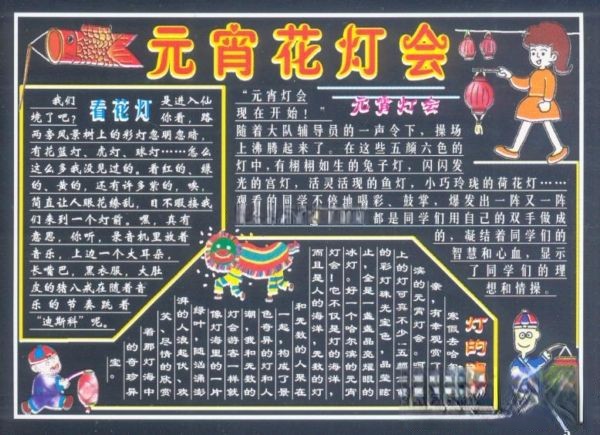 元宵花灯会
看花灯
我们 是进入仙
境了吧？ 你看，路
两旁风景树上的彩灯忽明忽暗，
有花篮灯、虎灯、球灯……怎么
这么多我没见过的。看红的、绿
的、黄的，还有许多紫的，咦，
简直让人眼花缭乱，目不暇接我
们来到一个灯前。嘿，真有
意思，你听，录音机里放着
音乐，上边一个大耳朵，
长嘴巴，黑衣服，大肚
皮的猪八戒在随着音
乐的节奏跳着
“迪斯科”呢。
元宵灯会
“元宵灯会
现在开始！”
随着大队辅导员的一声令下，操场
上沸腾起来了。在这些五颜六色的
灯中，有栩栩如生的兔子灯，闪闪发
光的宫灯，活灵活现的鱼灯，小巧玲珑的荷花灯……
观看的同学不停地喝彩、鼓掌，爆发出一阵又一阵
都是同学们用自己的双手做成
的，凝结着同学们的
智慧和心血，显示
了同学们的理
想和情操。
灯的
寒假去哈
亲，有幸观赏
滨的元宵灯会。
上的灯可真不少：五颜
的彩灯珠光宝色，晶莹
止，全是一盏盏晶亮耀眼的
冰灯。好一个哈尔滨的元宵
灯会！它不仅是灯的海洋，
而且是人的海洋，无数的灯
和无数的人聚在
一起，构成了景
色奇异的灯和人
潮，我和无数的
灯会游客一样，就
像灯海里的一片
绿叶，随 汹涌澎
湃的人浪起伏、欢
笑、尽情的欣赏
着那灯海中
的奇珍异
宝。